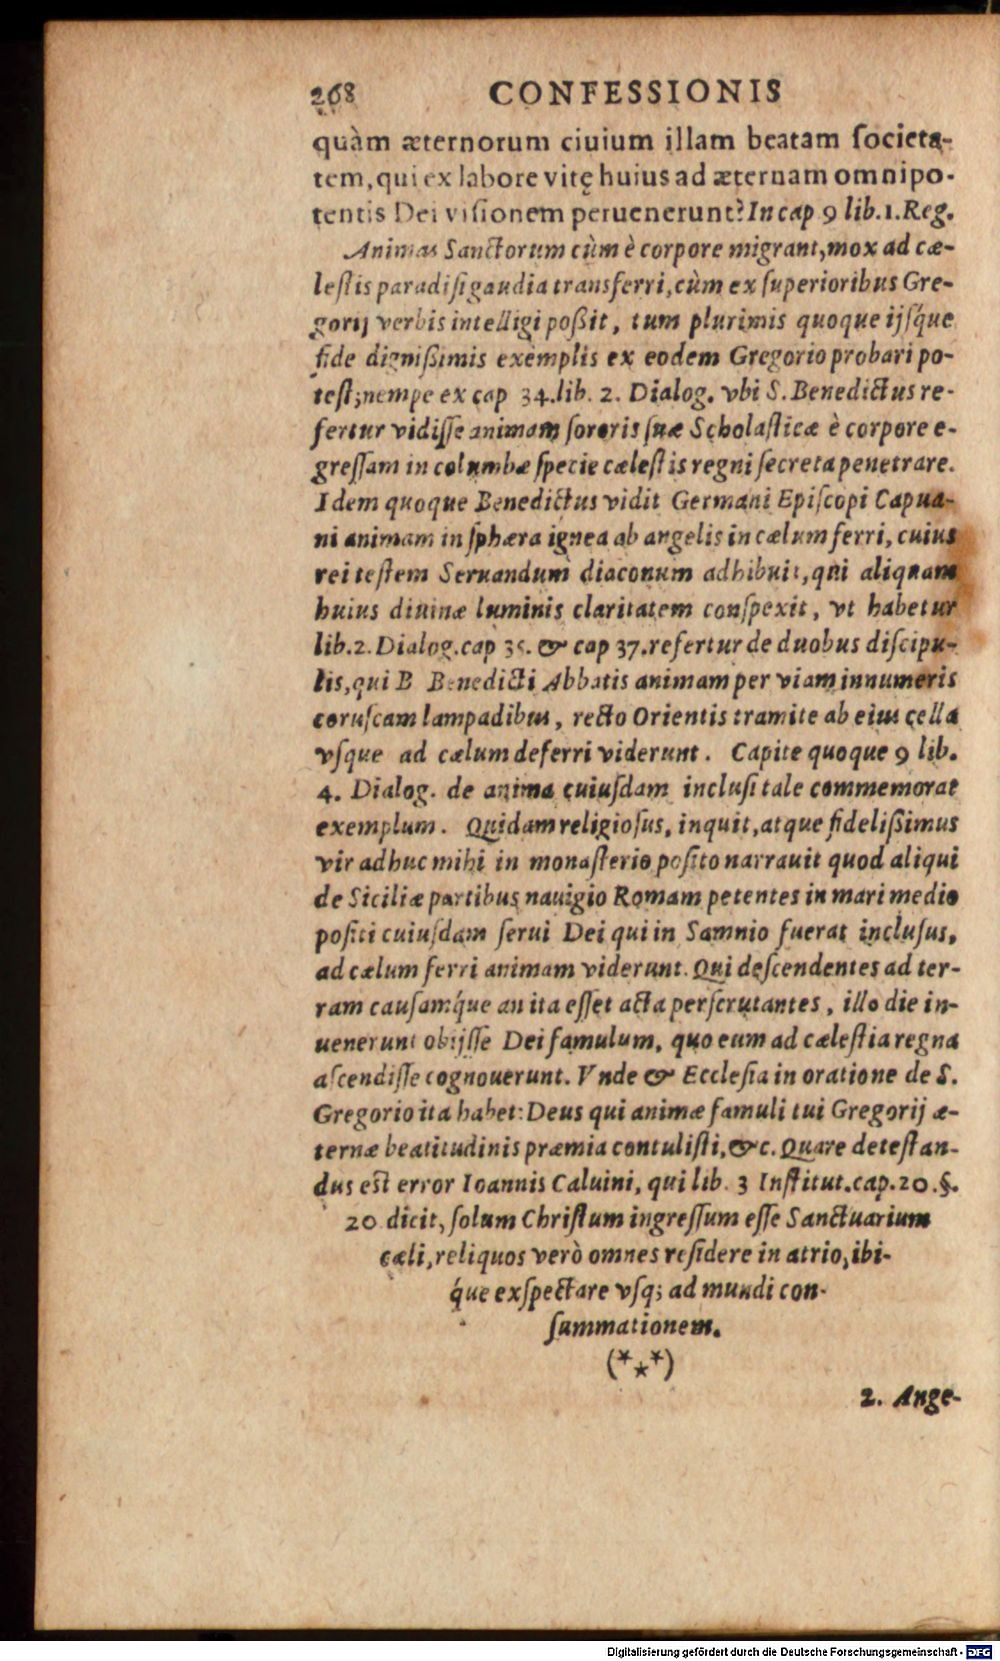 268 CONFESSIONIS
quàm æternorum ciuium illam beatam ſocieta-
tem, qui ex labore vitę huius ad æternam omnipo-
tentis Dei viſionem peruenerunt? In cap 9 lib. 1. Reg.
Animas Sanctorum cùm è corpore migrant, mox ad cæ-
leſtis paradiſi gaudia transferri, cùm ex ſuperioribus Gre-
gorij verbis intelligi poßit, tum plurimis quoque ijſq́ue
fide digniſsimis exemplis ex eodem Gregorio probari po-
teſt; nempe ex cap 34. lib. 2. Dialog. vbi S. Benedictus re-
fertur vidiſſe animam ſororis ſuæ Scholaſticæ è corpore e-
greſſam in columbæ ſpecie cæleſtis regni ſecreta penetrare.
Idem quoque Benedictus vidit Germani Epiſcopi Capua-
ni animam in ſphæra ignea ab angelis in cælum ferri, cuius
rei teſtem Seruandum diaconum adhibuit, qui aliquam
huius diuinæ luminis claritatem conſpexit, vt habetur
lib. 2. Dialog. cap 35. & cap 37. refertur de duobus diſcipu-
lis, qui B Benedicti Abbatis animam per viam innumeris
coruſcam lampadibus, recto Orientis tramite ab eius cella
vſque ad cælum deferri viderunt. Capite quoque 9 lib.
4. Dialog. de anima cuiuſdam incluſi tale commemorat
exemplum. Quidam religioſus, inquit, atque fidelißimus
vir adhuc mihi in monaſterio poſito narrauit quod aliqui
de Siciliæ partibus nauigio Romam petentes in mari medio
poſiti cuiuſdam ſerui Dei qui in Samnio fuerat incluſus,
ad cælum ferri animam viderunt. Qui deſcendentes ad ter-
ram cauſamq́ue an ita eſſet acta perſcrutantes, illo die in-
uenerunt obijſſe Dei famulum, quo eum ad cæleſtia regna
aſcendiſſe cognouerunt. Vnde & Eccleſia in oratione de S.
Gregorio ita habet: Deus qui animæ famuli tui Gregorij æ-
ternæ beatitudinis præmia contuliſti, &c. Quare deteſtan-
dus eſt error Ioannis Caluini, qui lib. 3 Inſtitut. cap. 20. §.
20 dicit, ſolum Chriſtum ingreſſum eſſe Sanctuarium
cæli, reliquos verò omnes reſidere in atrio, ibi-
q́ue exſpectare vſq; ad mundi con-
ſummationem.
(*⋆*)
2. Ange-
Digitalisierung gefördert durch die Deutsche Forschungsgemeinschaft - DFG